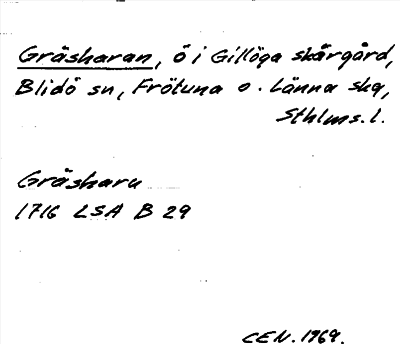 Gräsharan, ö i Gillöga skärgård,
Blidö sn, Frötuna o. Länna skg,
Sthlms. l.
Gräsharu
1716 LSA B 29
CEN. 1969.